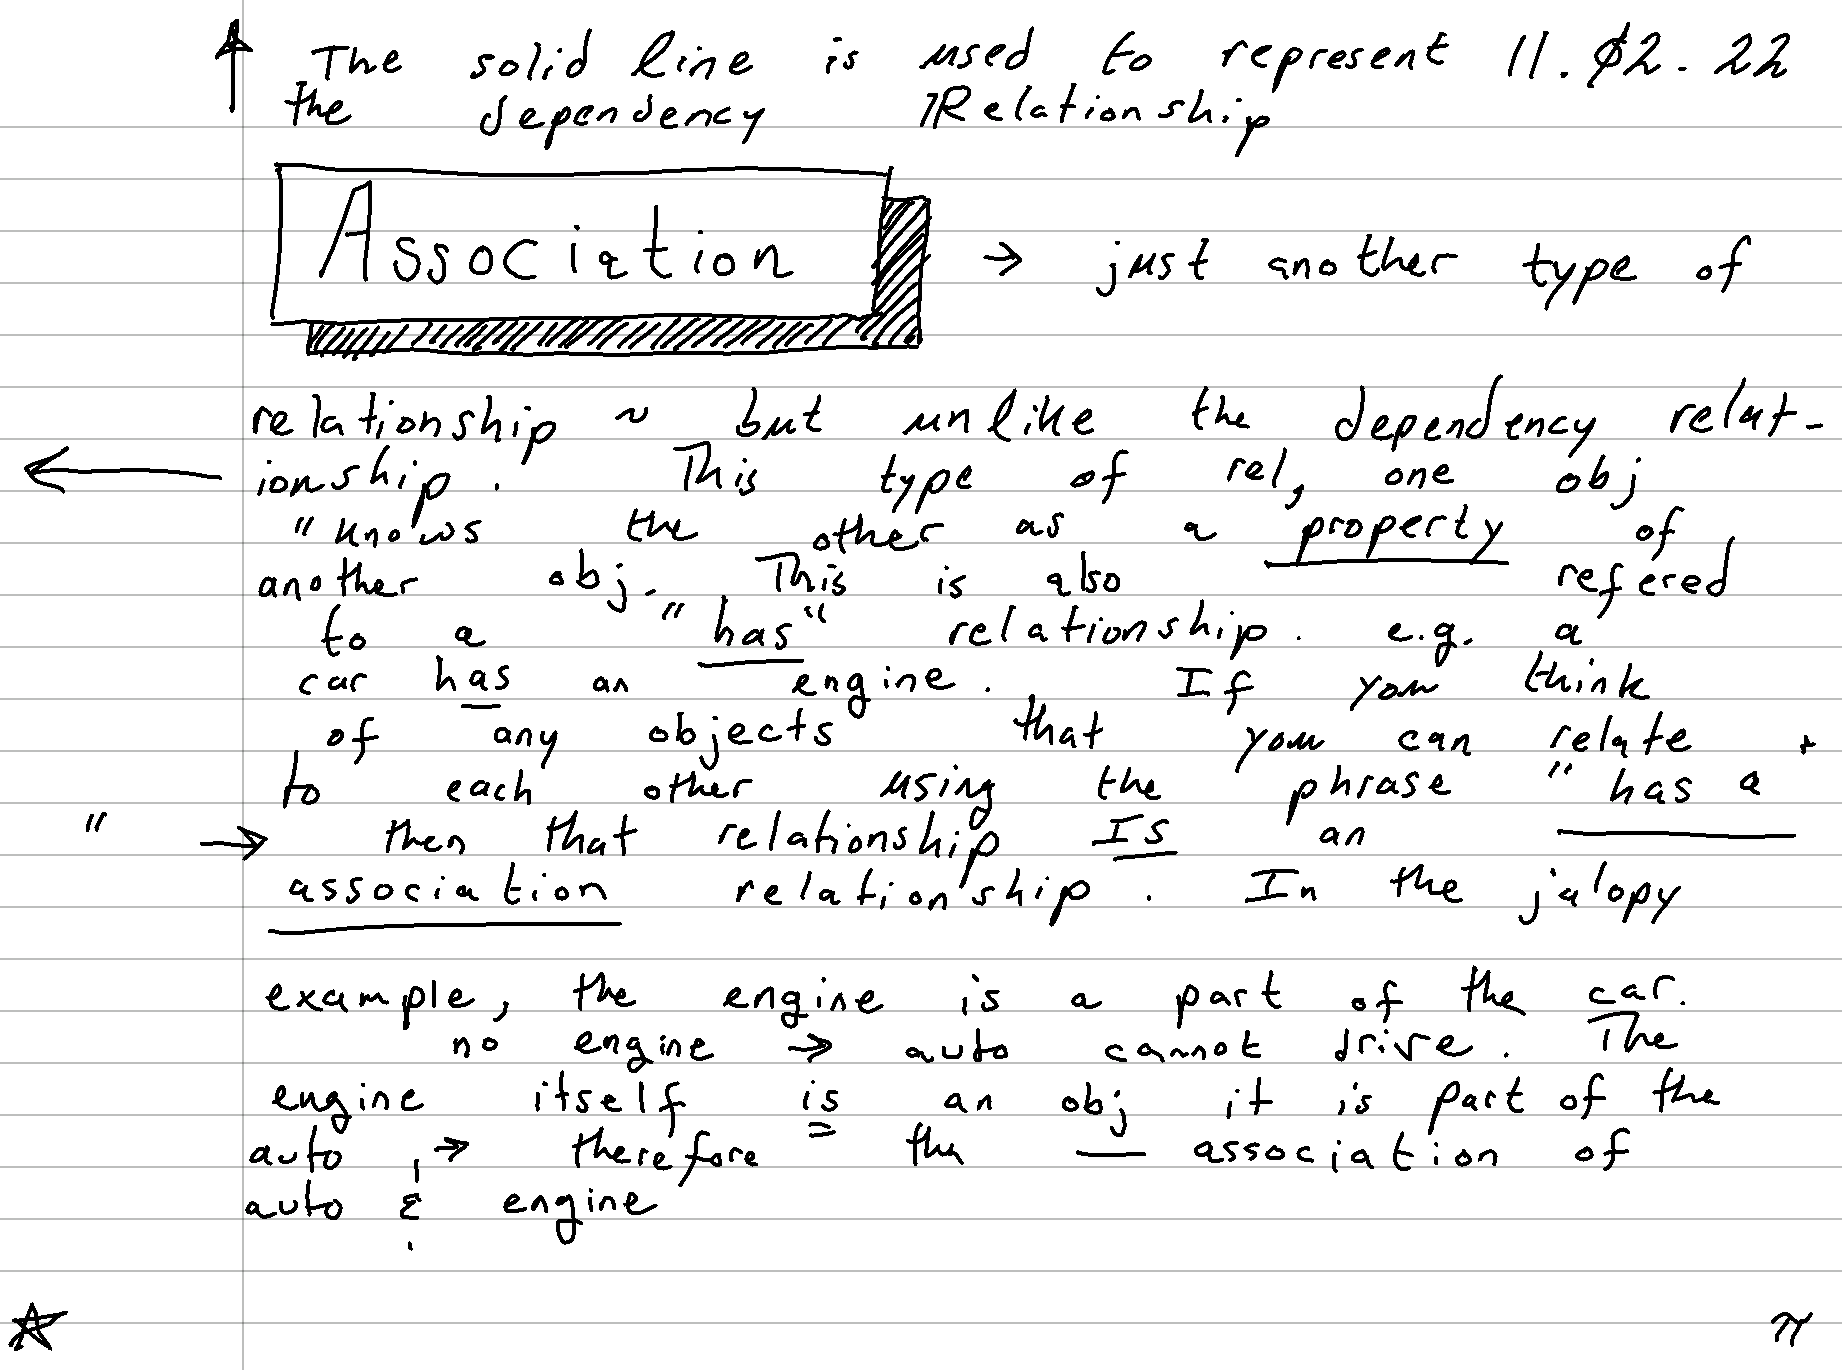 The solid line is used to represent 11.02.22
the dependency Relationship
Association → just another type of
relationship ~ but unlike the dependency relat-
ionship. This type of rel, one obj
"knows the other as a property of
another obj." This is also refered
to a "has" relationship. e.g. a
car has an engine. If you think
of any objects that you can relate +
to each other using the phrase "has a
" → then that relationship IS an
association relationship. In the jalopy
example, the engine is a part of the car.
no engine → auto cannot drive. The
engine itself is an obj it is part of the
auto → therefore the — association of
auto & engine
π